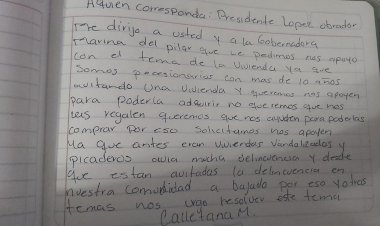 Aquien corresponda: Presidente Lopez obrador
me dirijo a usted y a la Gobernadora
Marina del pilar que le pedimos nos apoye
con el tema de la Uvienda ya que
Somos pocesionarios con mas de 10 años
avitando Una Uivienda y queremos nos apoyen
para Poderla adquirir no queremos que nos
las regalen queremos que nos ayuden para poderlas
comprar Por eso Solicitamos nos apollen
Ya que antes eran Uviendas Vandalizadas y
picaderos avia mucha delincuencia y desde
que estan avitadas la delincuencia en
nuestra Comunidad a bajado por eso y otros
temas nos urge resolver este tema
Calletana M.